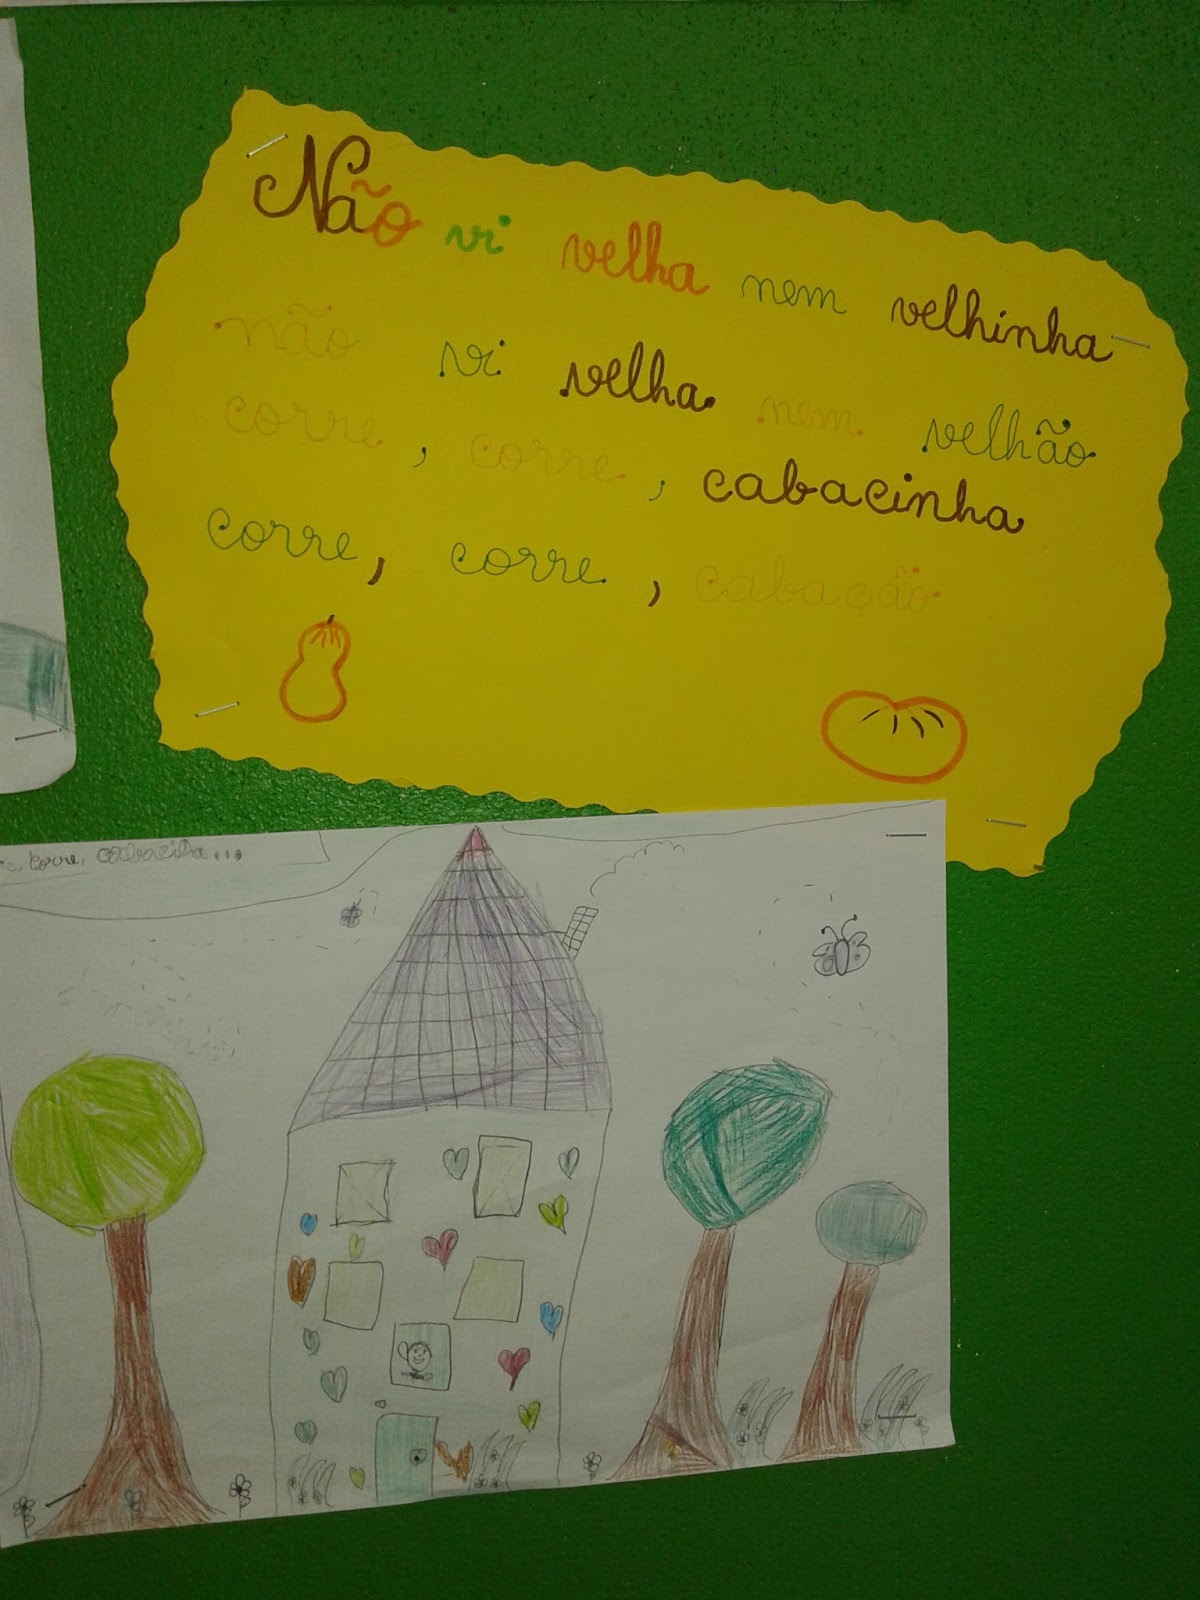 Não vi velha nem velhinha
não vi velha nem velhão
corre, corre, cabacinha
corre, corre, cabação
corre, cabacinha...